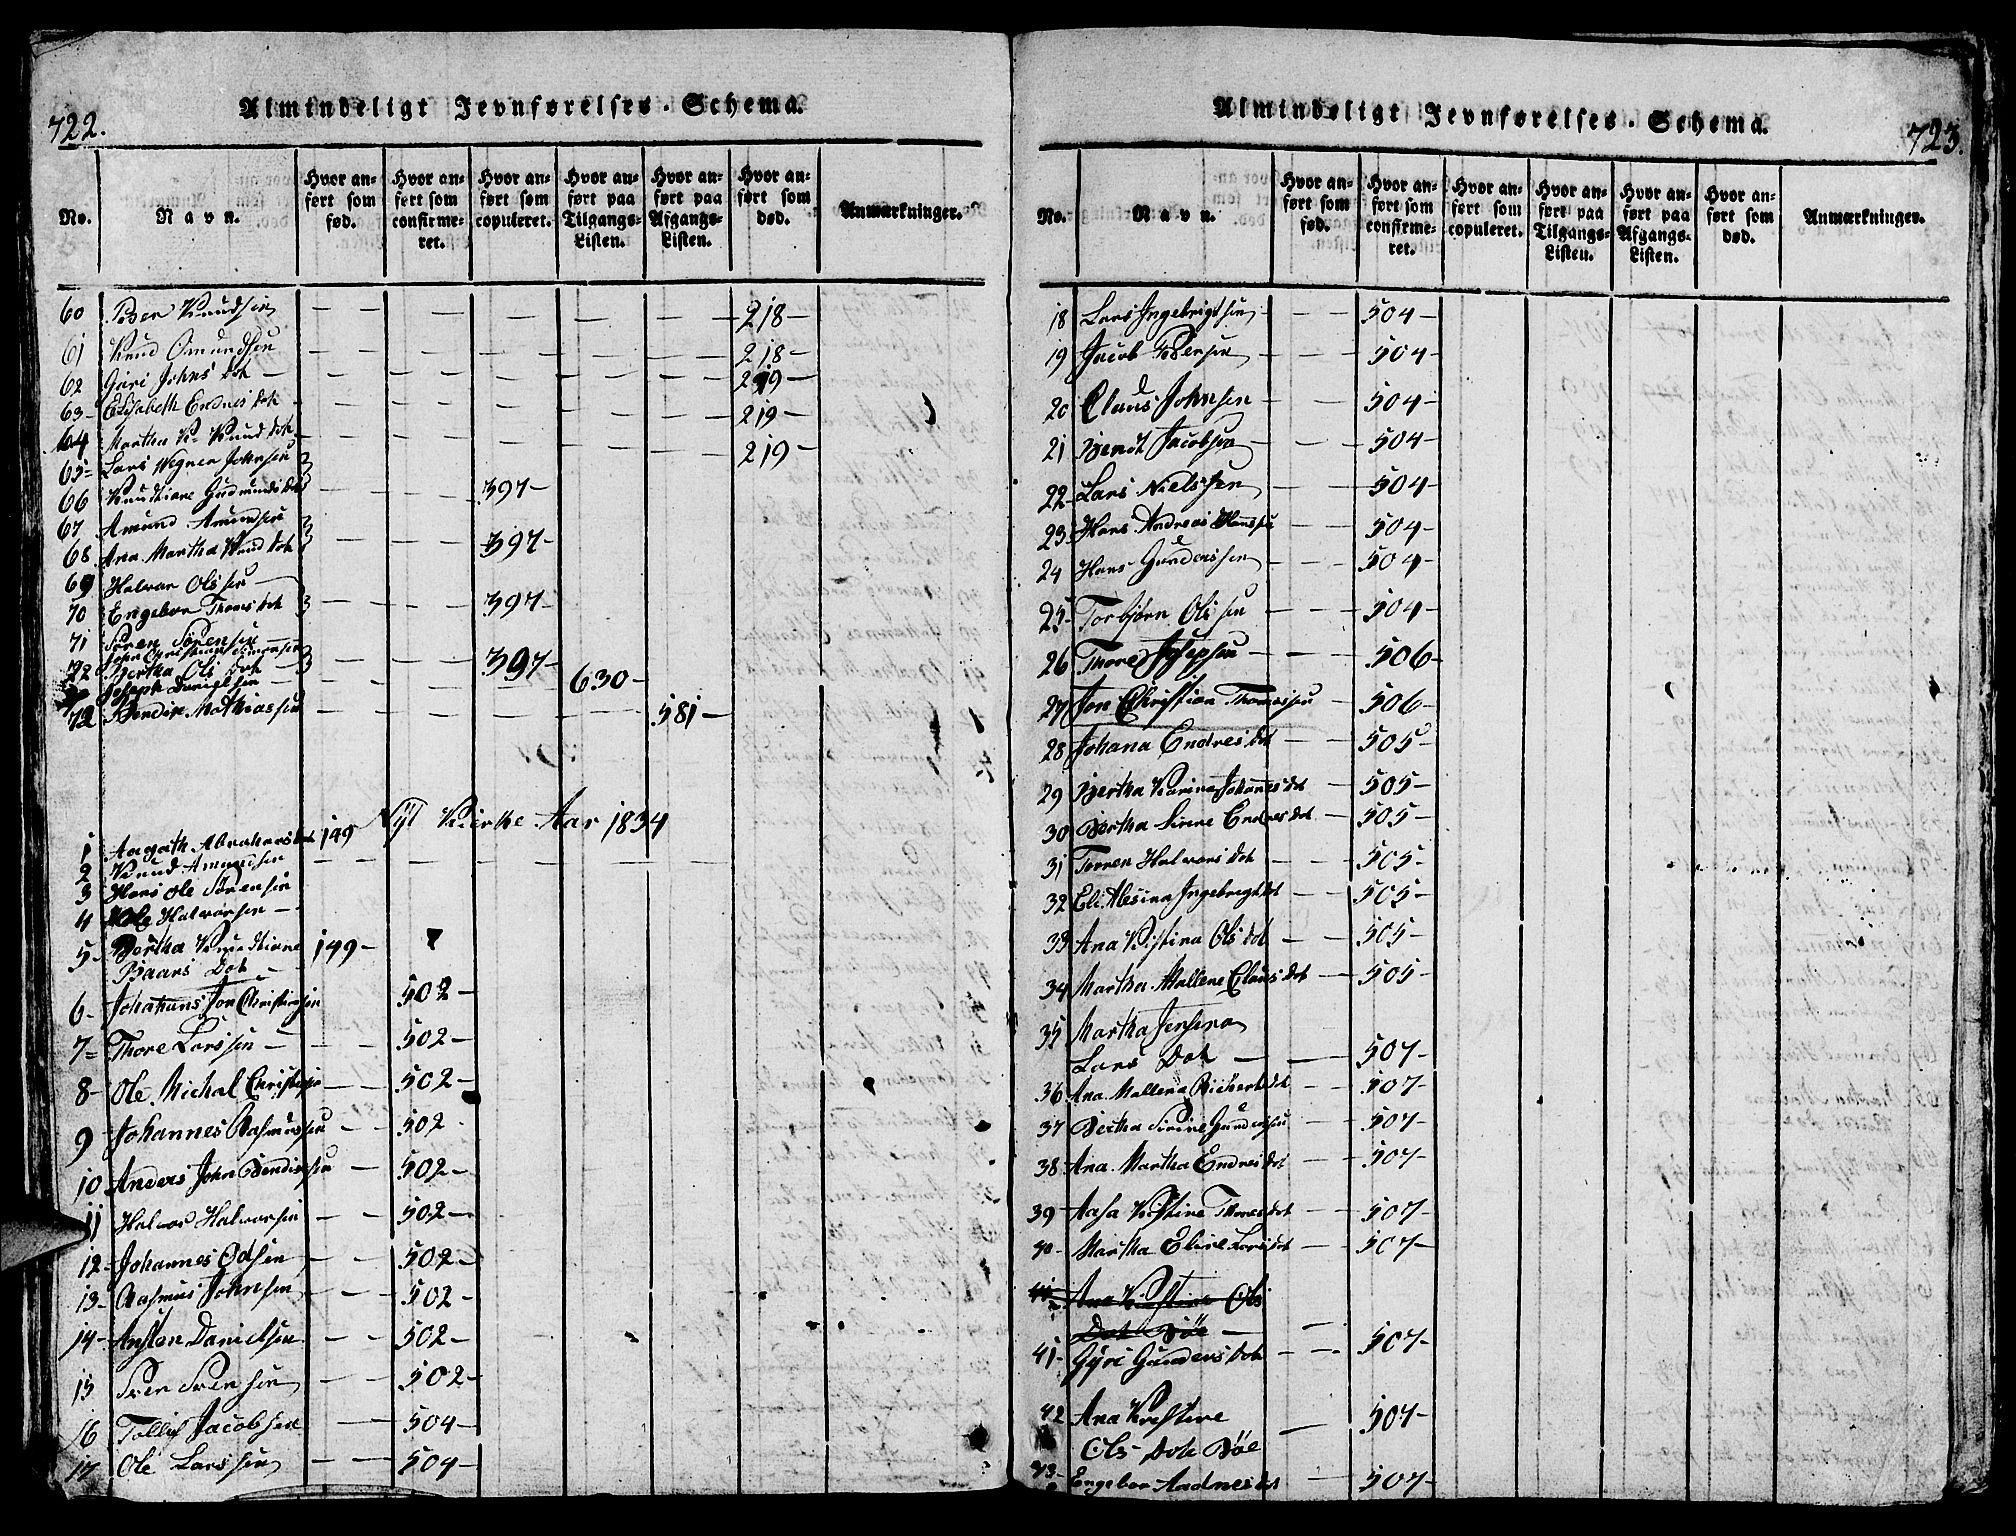 722.
Almindeligt Jevnførelses-Schema.
No.
Navn.
Hvor anført som fød.
Hvor anført som confirmeret.
Hvor anført som copuleret.
Hvor anført paa Tilgangs-Listen.
Hvor anført paa Afgangs-Listen.
Hvor anført som død.
Anmærkninger.
60 Peder Knudsen — — — — — 218 —
61 Knud Omundsen — — — — — 218 —
62 Gùri Johns Dot — — — — — 219 —
63 Elisabeth Endres Dot — — — — — 219 —
64 Martha K. Knud Dot — — — — — 219 —
65 Lars Wegner Johnsen
66 Knudtiane Gudmunds Dot — — 397 —
67 Amund Amundsen
68 Ana Martha Knud Dot — — 397 —
69 Halvor Olssen —
70 Engebor Thores Dot — — 397 —
71 Søren Sørensen
John Christian Simonsen
72 Bertha Ols Dot — — 397 —
Joseph Danielsen — — — 630 —
72 Bendix Mathiassen — — — — 581 —
Nÿt Kierke Aar 1834
1 Aagath Abrahams Dot 149
2 Knud Amundsen — — — — —
3 Hans Ole Sørensen
4 Ole Halvorsen —
5 Bertha Knudtiane 149 —
Baars Dot —
6 Johanns Jon Christiansen 502 —
7 Thore Larssen — — — 502 —
8 Ole Michal Christensen — 502 —
9 Johannes Rasmussen — 502 -
10 Anders John Bendixsen — 502 —
11 Halvor Halvorsen — — 502 —
12 Johannes Odsen — — 502 —
13 Rasmus Johnsen — — 502 —
14 Austen Danielsen — — 502 —
15 Sven Svensen — — 502 —
16 Tollef Jacobsen — — 504 —
17 Ole Larssen — — 504 —
723.
Almindeligt Jevnførelses-Schema.
No.
Navn.
Hvor anført som fød.
Hvor anført som confirmeret.
Hvor anført som copuleret.
Hvor anført paa Tilgangs-Listen.
Hvor anført paa Afgangs-Listen.
Hvor anført som død.
Anmærkninger.
18 Lars Ingebrigtsen — — 504 —
19 Jacob Pedersen — — 504 —
20 Claus Johnsen — — 504 —
21 Bendt Jacobsen — — 504 —
22 Lars Nielssen — — 504 —
23 Hans Andreas Hanssen 504 —
24 Hans Gundersen — — 504 —
25 Torbjørn Olssen — — 504 —
26 Thore Josepsen — — 506 —
27 Jon Christian Thomassen — 506 —
28 Johana Endres Dot — — 505 —
29 Bertha Karina Johannes Dot 505 —
30 Bertha Sirene Endres Dot — 505 —
31 Torren Halvors Dot — — 505 —
32 Eli Alesina Ingebregt Dot — 505 —
33 Ana Kistina Ols Dot — — 505 —
34 Martha Mallene Claus Dot — 505 —
35 Martha Jensena
Lars Dot — — 507 —
36 Ana Mallena Richert Dot — 507 —
37 Bertha Sirine Gundersen — 507 —
38 Ana Martha Endres Dot — 507 —
39 Aasa Kistine Thores Dot — 507 —
40 Martha Eline Lars Dot — 507 —
41 Ana Kirstine Ols
Dot Böe — —
41 Gÿri Gunders Dot — — 507 —
42 Ana Kristine — 507 —
Ols Dot Böe
43 Engebor Aadnes Dot — 507 —